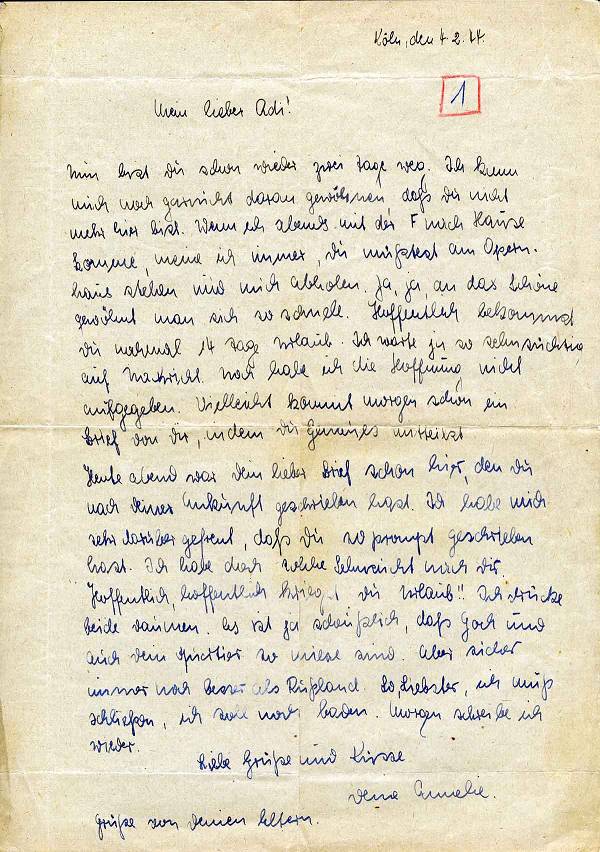 Köln, den 4.2.44.
1
Mein lieber Adi!
Nun bist Du schon wieder zwei Tage weg. Ich kann
mich noch garnicht daran gewöhnen daß Du nicht
mehr hier bist. Wenn ich abends mit der F nach Hause
komme, meine ich immer, Du müßtest am Opern-
haus stehen und mich abholen. Ja, ja, an das Schöne
gewöhnt man sich so schnell. Hoffentlich bekommst
Du nochmal 14 Tage Urlaub. Ich warte ja so sehnsüchtig
auf Nachricht. Noch habe ich die Hoffnung nicht
aufgegeben. Vielleicht kommt morgen schon ein
Brief von Dir, in dem Du Genaues mitteilst
Heute abend war Dein lieber Brief schon hier, den Du
nach Deiner Ankunft geschrieben hast. Ich habe mich
sehr darüber gefreut, daß Du so prompt geschrieben
hast. Ich habe doch solche Sehnsucht nach Dir.
Hoffentlich, hoffentlich kriegst Du Urlaub!! Ich drücke
beide Daumen. Es ist ja scheußlich, daß Goch und
auch Dein Quartier so miese sind. Aber sicher
immer noch besser als Rußland. So, Liebster, ich muß
schließen, ich will noch baden. Morgen schreibe ich
wieder.
Liebe Grüße und Küsse
Deine Annelie.
Grüße von Deinen Eltern.